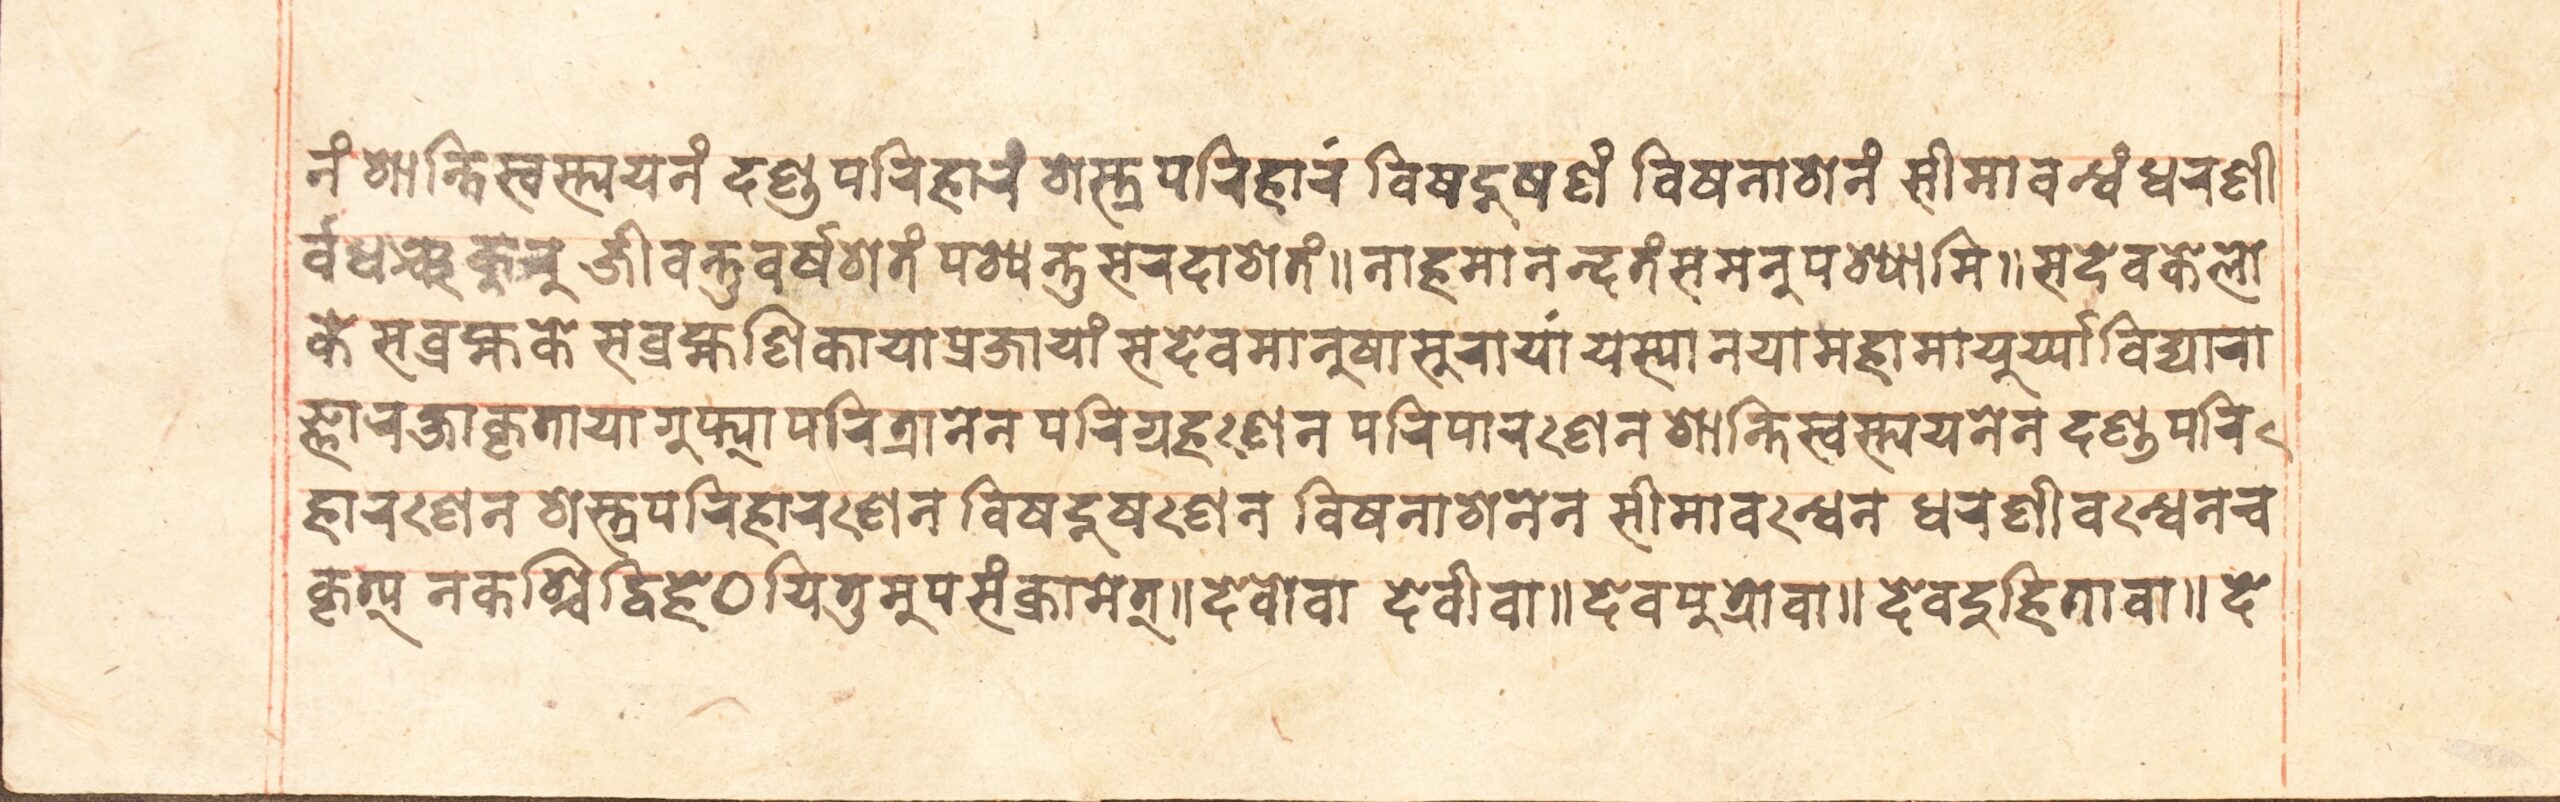 नं शान्तिस्वस्त्ययनं दण्डपरिहारं शस्त्रपरिहारं विषदूषणं विषनाशनं सीमावन्धं धरणी
र्वधञ्च कुरु जीवन्तुवर्षशतं पश्यन्तुसरदाशतं॥ नाहमानन्दतंसमनुपश्यामि॥ सदेवकेलो
के सव्रह्मके सव्रह्मणिकायाप्रजायां सदेवमानुषासुरायां यस्यानयामहामायुर्य्याविद्यारा
ज्ञारक्षाकृतायागुप्त्यापरित्रानेन परिग्रहणेन परिपारणेन शान्तिस्वस्त्ययनेन दण्डपरि
हारणेन शस्त्रपरिहारणेन विषदूषणेन विषनाशनेन सीमावन्धेन धरणीवन्धेनच
कृत्य नकश्चिद्विहेठयितुमुपसंक्रामेत्॥ देवोवा देवीवा॥ देवपुत्रोवा॥ देवदुहितावा॥ दे